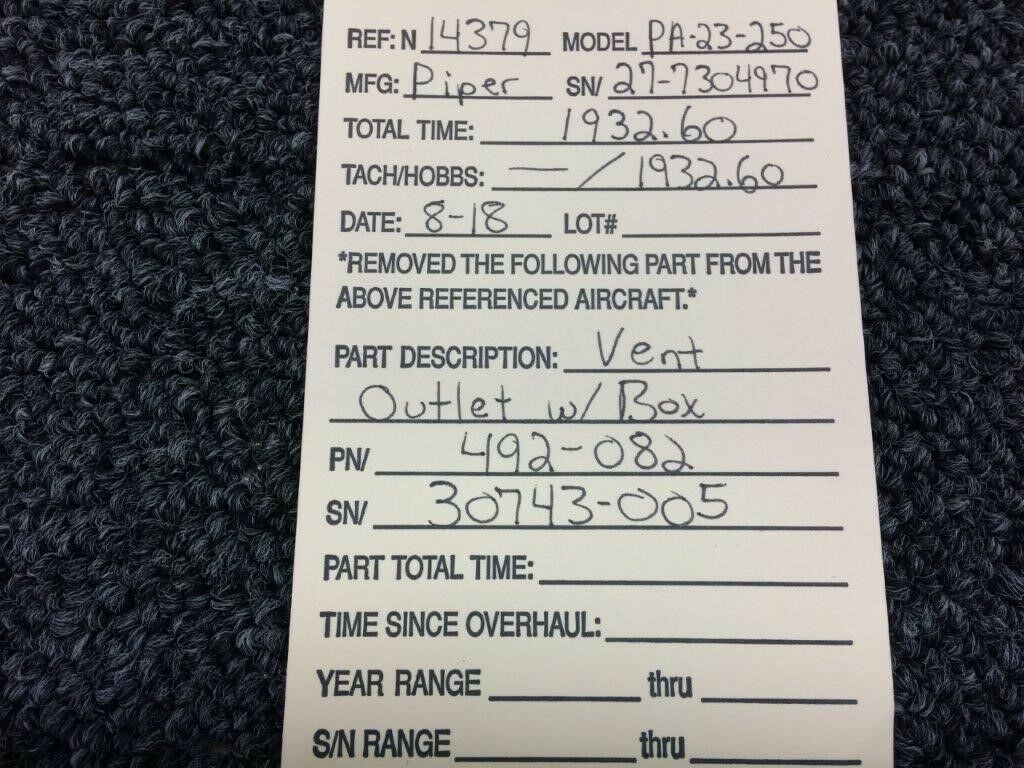 REF: N 14379 MODEL PA-23-250
MFG: Piper SN/ 27-7304970
TOTAL TIME: 1932.60
TACH/HOBBS: — / 1932.60
DATE: 8-18 LOT#
*REMOVED THE FOLLOWING PART FROM THE
ABOVE REFERENCED AIRCRAFT.*
PART DESCRIPTION: Vent
Outlet w/ Box
PN/ 492-082
SN/ 30743-005
PART TOTAL TIME:
TIME SINCE OVERHAUL:
YEAR RANGE thru
S/N RANGE thru